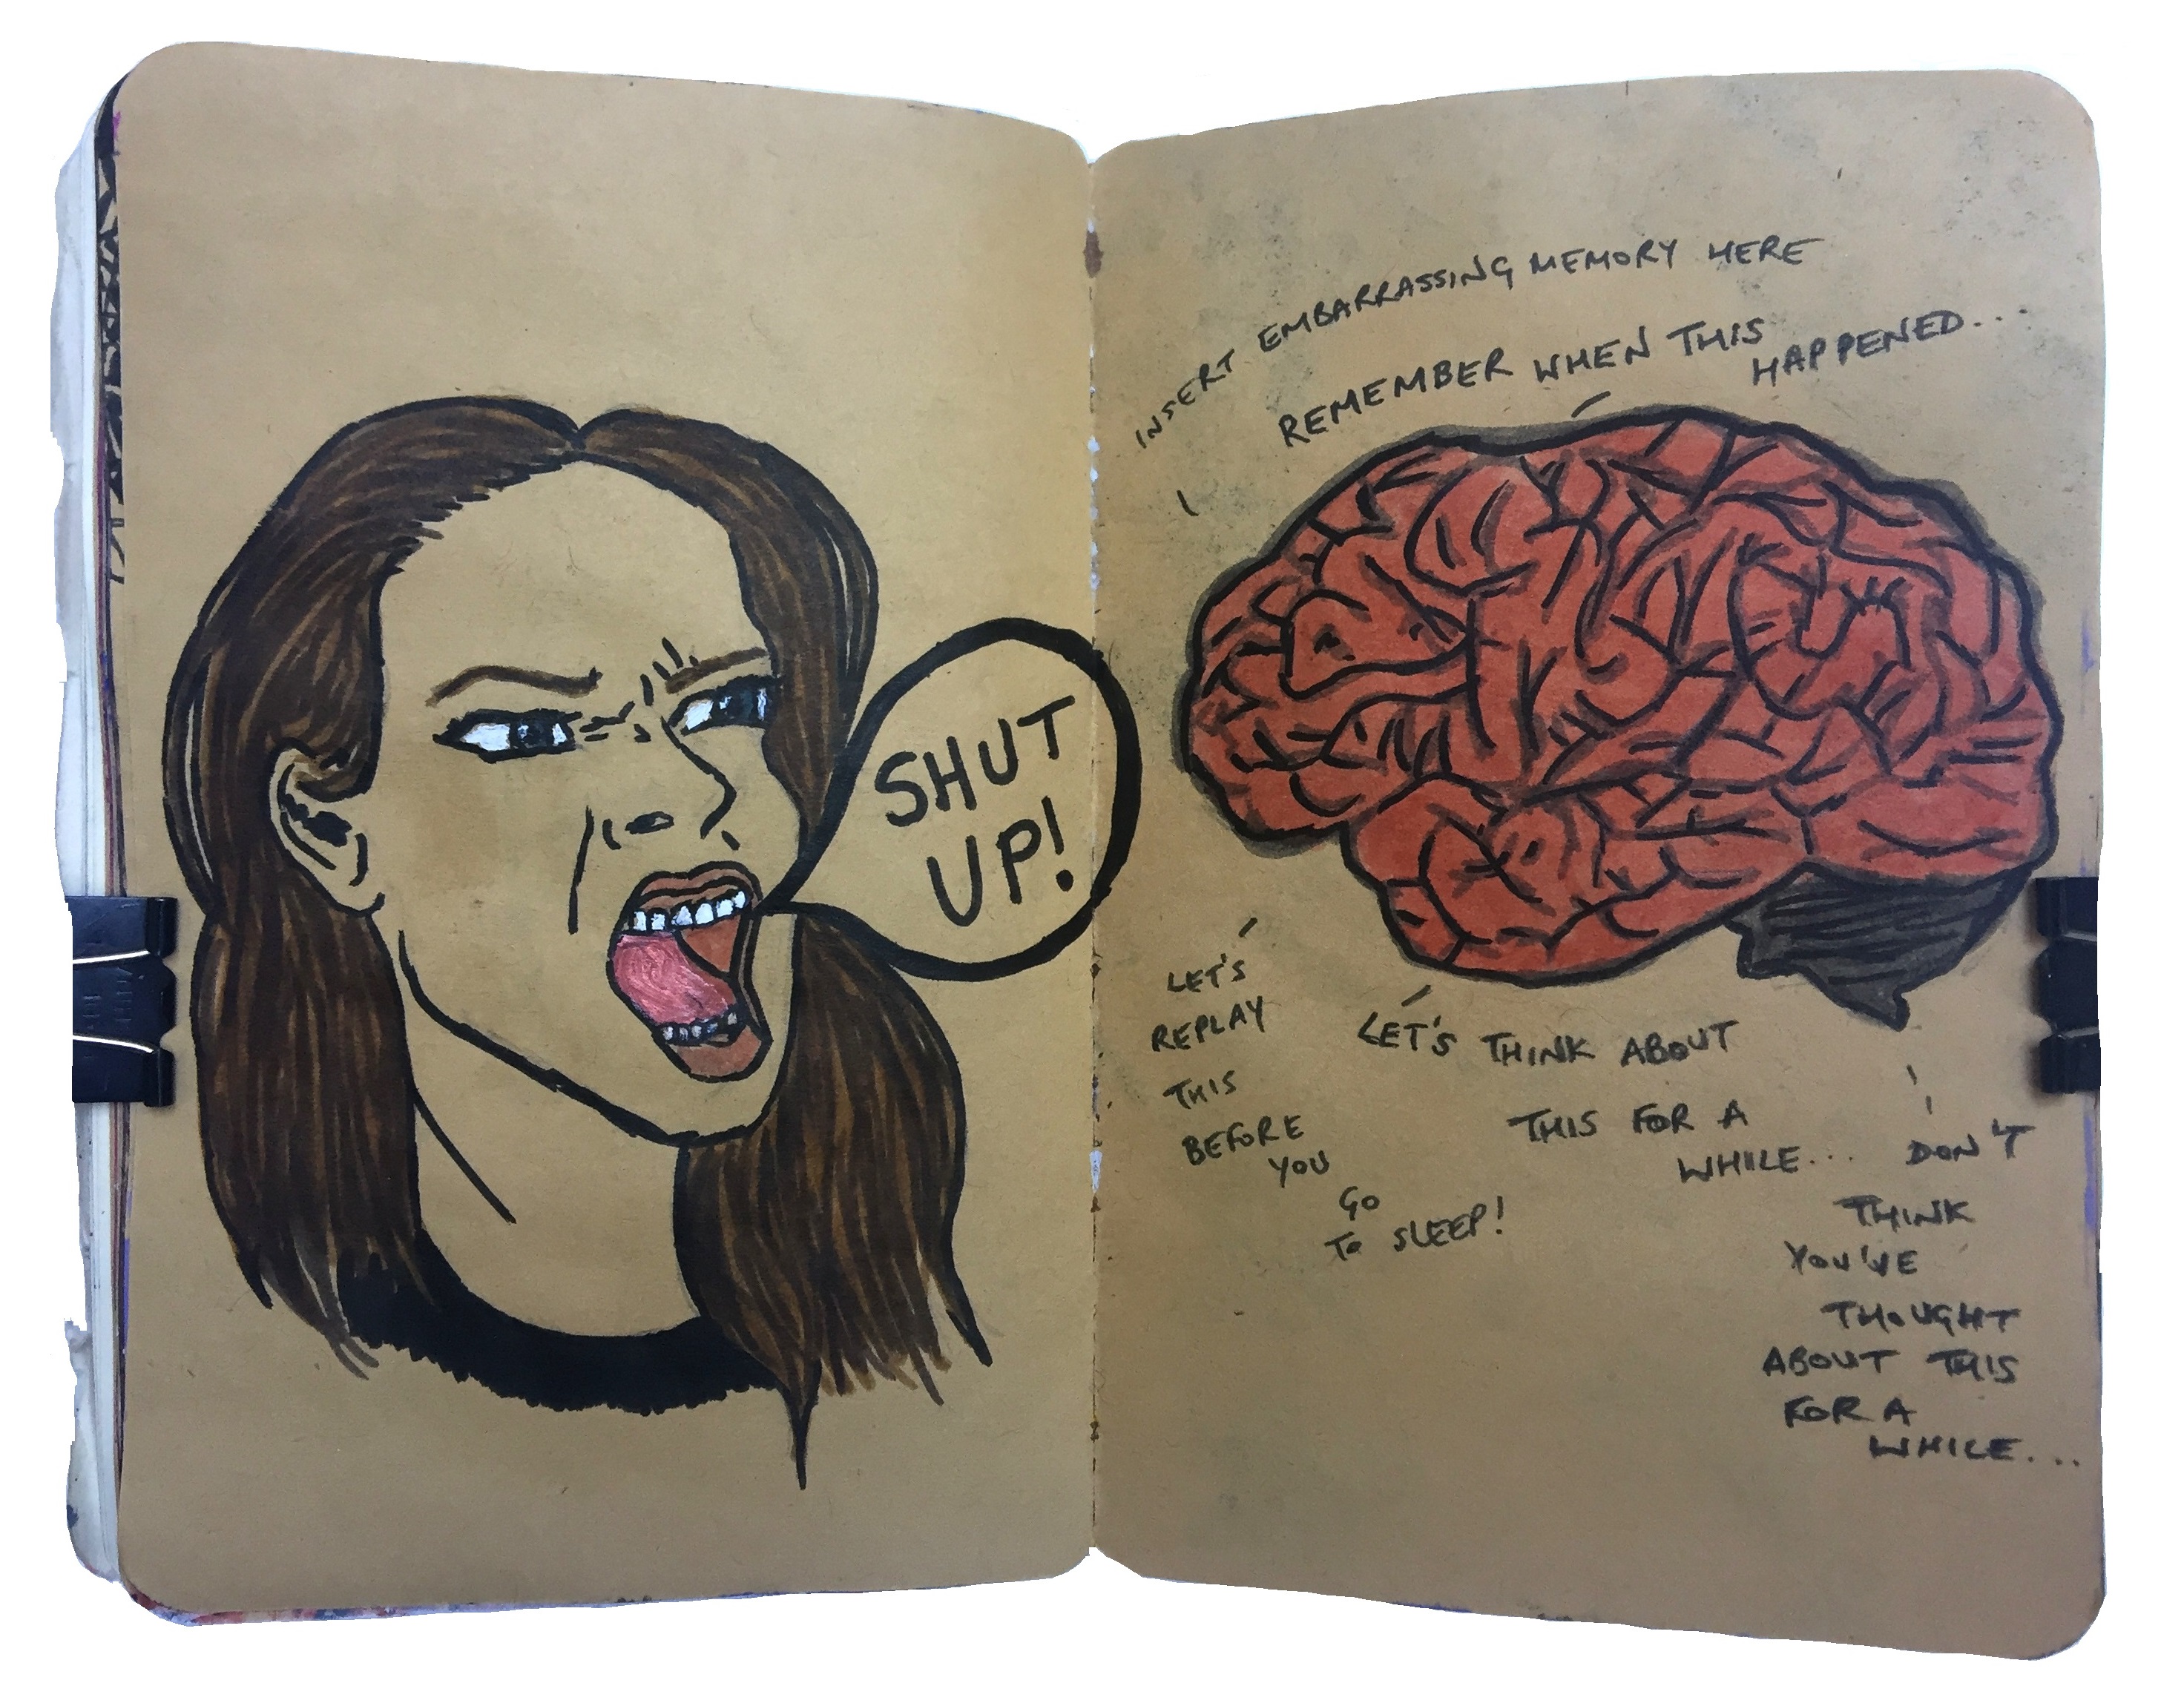 SHUT
UP!
INSERT EMBARRASSING MEMORY HERE
REMEMBER WHEN THIS
HAPPENED...
LET'S
REPLAY
THIS
BEFORE
YOU
GO
TO SLEEP!
LET'S THINK ABOUT
THIS FOR A
WHILE...
DON'T
THINK
YOU'VE
THOUGHT
ABOUT THIS
FOR A
WHILE...